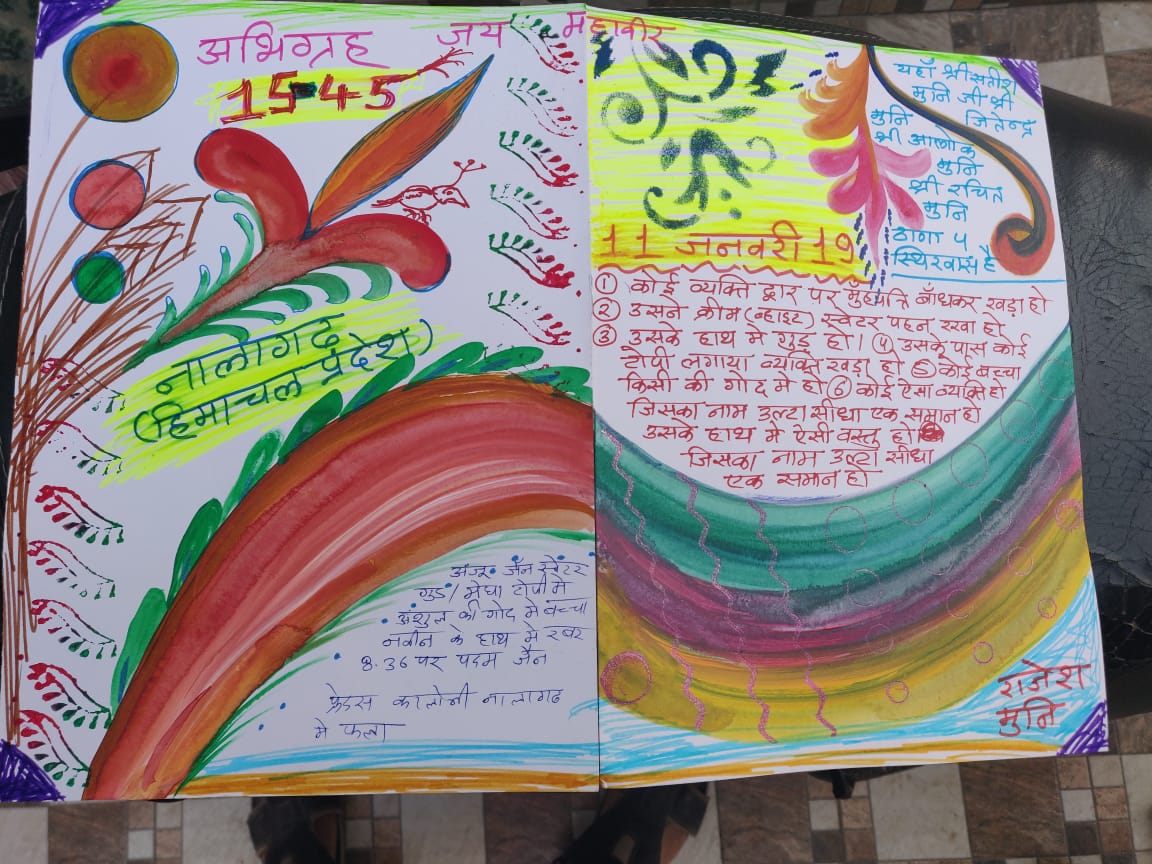 अभिग्रह जय महावीर
1545
नालागढ
(हिमाचल प्रदेश)
अंजू जैन स्वेटर
गुड / मेघा टोपी मे
अंशुल की गोद मे बच्चा
नवीन के हाथ मे रबर
8.36 पर पदम जैन
फ्रेंडस कालोनी नालागढ
मे फला
यहाँ श्री सतीश
मुनि जी श्री
जितेन्द्र
मुनि
श्री आलोक
मुनि
श्री रचित
मुनि
ठाणा 5
स्थिरवास है
11 जनवरी 19
① कोई व्यक्ति द्वार पर मुँहपत्ति बाँधकर खड़ा हो
② उसने क्रीम (व्हाइट) स्वेटर पहन रखा हो
③ उसके हाथ मे गुड़ हो। ④ उसके पास कोई
टोपी लगाया व्यक्ति खड़ा हो ⑤ कोई बच्चा
किसी की गोद मे हो ⑥ कोई ऐसा व्यक्ति हो
जिसका नाम उल्टा सीधा एक समान हो
उसके हाथ मे ऐसी वस्तु हो
जिसका नाम उल्टा सीधा
एक समान हो
राजेश
मुनि